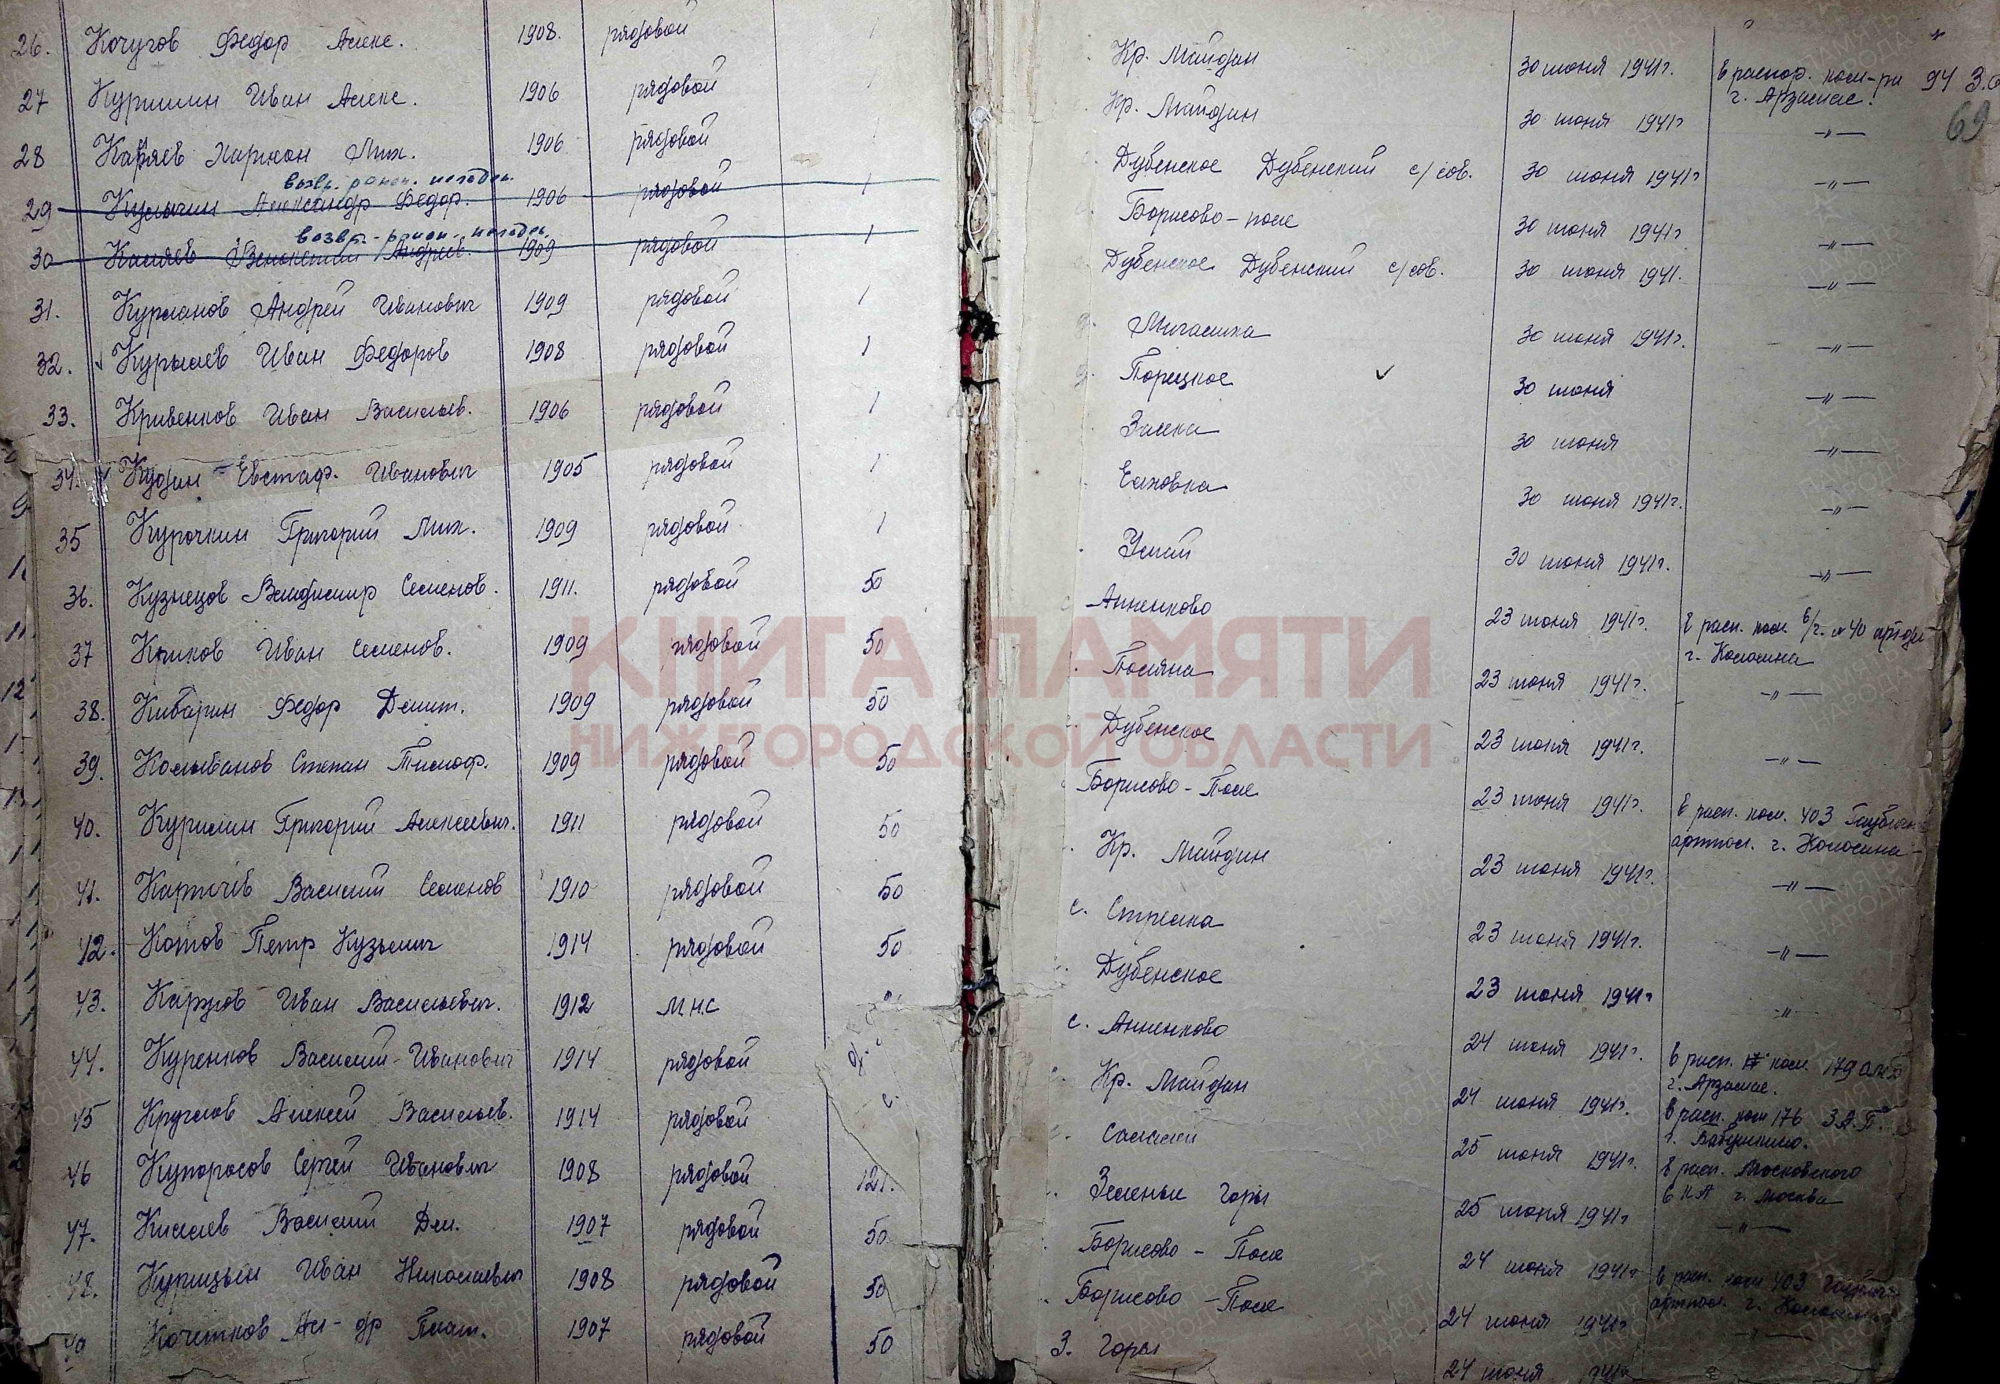 26. Кочугов Федор Алекс. 1908. рядовой 1 Кр. Майдан 30 июня 1941г. в распор. ком-ра 94 З.
г. Арзамас.
69
27 Куршин Иван Алекс. 1906 рядовой Кр. Майдан 30 июня 1941г —〃—
28 Харитон Мих. 1906 рядовой Дубенское Дубенский с/сов. 30 июня 1941г —〃—
возвр.
29 Александр Федор. 1906 рядовой 1 Борисово-поле 30 июня 1941г —〃—
возвр.
30 Андреев. 1909 рядовой 1 Дубенское Дубенский с/сов. 30 июня 1941. —〃—
31. Курманов Андрей Иванович 1909 рядовой 1 30 июня 1941г. —〃—
32. Иван Федоров 1908 рядовой 1 Порецкое 30 июня —〃—
33. Кривенков Иван Васильев. 1906 рядовой 1 Засека 30 июня —〃—
34. Кудин Евстаф. Иванович 1905 рядовой 1 Елховка 30 июня 1941г. —〃—
35 Курочкин Григорий Мих. 1909 рядовой 1 30 июня 1941г. —〃—
36. Кузнецов Владимир Семенов. 1911. рядовой 50 Анненково 23 июня 1941г. в расп. ком в/ч. №40
г. Коломна
37 Иван Семенов. 1909 рядовой 50 23 июня 1941г. —〃—
38. Кибарин Федор Дмит. 1909 рядовой 50 Дубенское 23 июня 1941г. —〃—
39. Колыванов Степан Тимоф. 1909 рядовой 50 Борисово-Поле 23 июня 1941г. в расп. ком. 403 Гаубичн.
артпол. г. Коломна
40. Григорий Алексеевич. 1911 рядовой 50 Кр. Майдан 23 июня 1941г. —〃—
41. Василий Семенов 1910 рядовой 50 с. Стрелка 23 июня 1941г. —〃—
42. Котов Петр Кузьмич 1914 рядовой 50 Дубенское 23 июня 1941г —〃—
43. Иван Васильевич. 1912 М.н.с с. Анненково 24 июня 1941г. в расп. ком. 179
г. Арзамас.
44. Куренков Василий Иванович 1914 рядовой Кр. Майдан 24 июня 1941г. в расп. ком 176 З.А.П.
г.
45 Круглов Алексей Васильев. 1914 рядовой 25 июня 1941г. в расп. Московского
ВКА г. Москва
46 Купоросов Сергей Иванович 1908 рядовой 121. Зеленые Горы 25 июня 1941г —〃—
47. Василий Дм. 1907 рядовой 50 Борисово-Поле 24 июня 1941г в расп. ком 403
артпол. г.
48. Курицын Иван Николаевич 1908 рядовой 50 Борисово-Поле 24 июня 1941г —〃—
49 Кочетков Ал-др Плат. 1907 рядовой 50 З. Горы 24 июня 1941г
КНИГА ПАМЯТИ
НИЖЕГОРОДСКОЙ ОБЛАСТИ